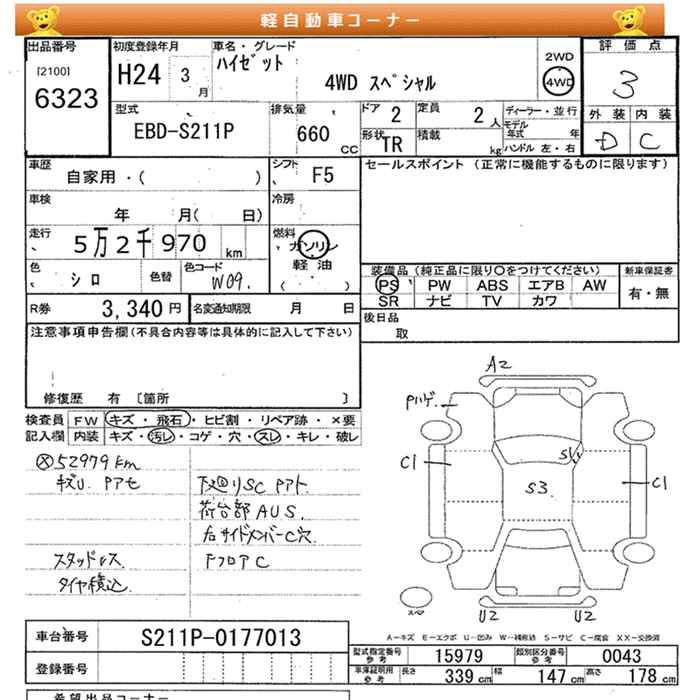 軽自動車コーナー
出品番号
[2100]
6323
初度登録年月
H24 3 月
車名・グレード
ハイゼット
4WD スペシャル
2WD
4WD
評価点
3
外装 内装
D C
型式
EBD-S211P
排気量
660 CC
ドア 2
定員 2 人
形状 TR
積載 kg
ディーラー・並行
モデル年式 年
ハンドル 左・右
車歴
自家用・( )
シフト F5
セールスポイント (正常に機能するものに限ります)
車検
年 月( 日)
冷房
走行
5万2千970 km
燃料
ガソリン
軽油
( )
色
シロ
色替
色コード
W09.
装備品(純正品に限り〇をつけてください)
PS PW ABS エアB AW
SR ナビ TV カワ
新車保証書
有・無
R券 3,340 円
名変通知期限 月 日
後日品
取
注意事項申告欄(不具合内容等は具体的に記入して下さい)
修復歴 有 [箇所 ]
検査員記入欄
FW キズ・飛石・ヒビ割・リペア跡・×要
内装 キズ・汚レ・コゲ・穴・スレ・キレ・破レ
52979km
キズU. Pアセ
スタッドレス
タイヤ積込
下廻りSC Pアト.
荷台部AUS.
右サイドメンバーC穴
FフロアC
A2
Pハゲ
C1
S1
S3
C1
U2
U2
A－キズ E－エクボ U－凹み W－補修跡 S－サビ C－腐食 XX－交換済
車台番号 S211P-0177013
登録番号
型式指定番号 参考 15979
類別区分番号 参考 0043
車庫証明用 参考 長さ 339 cm 幅 147 cm 高さ 178 cm
希望出品コーナー